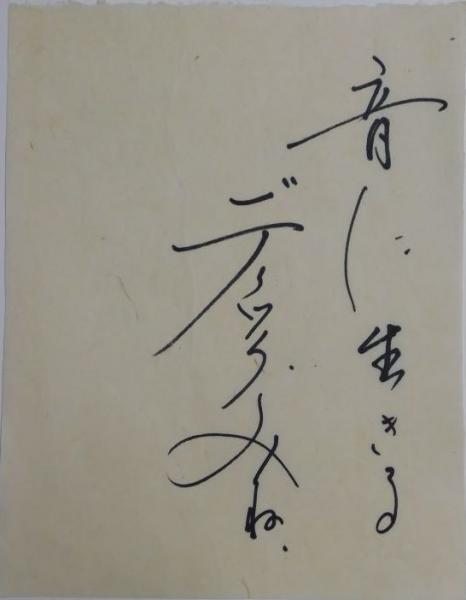 音に生きる
ディック・みね